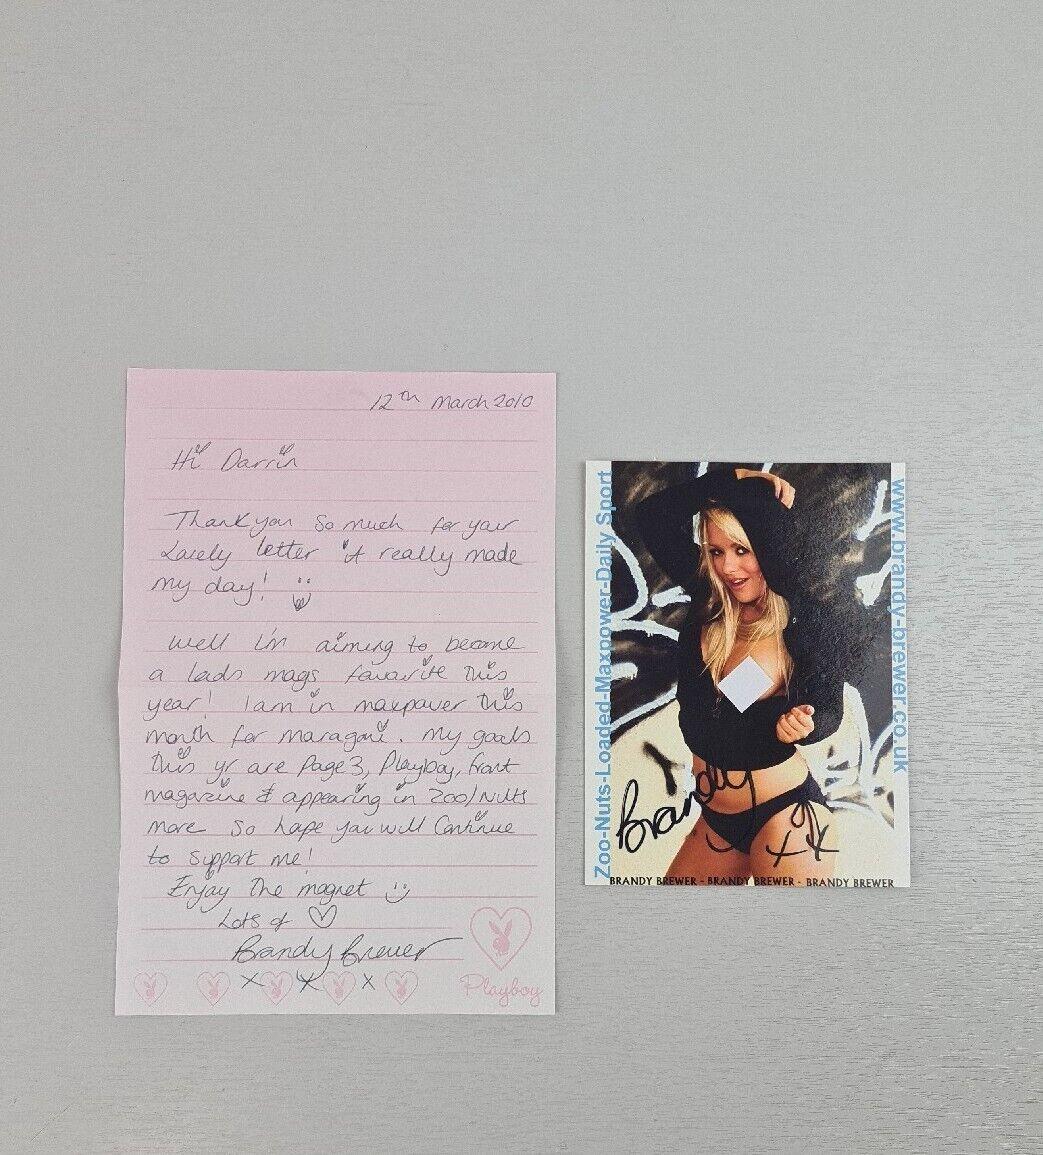 12th March 2010
Hi Darrin
Thank you so much for your
lovely letter it really made
my day!
Well I'm aiming to become
a lads mags favourite this
year! I am in maxpower this
month for maragoni. My goals
this yr are Page 3, Playboy, Front
magazine & appearing in Zoo/Nuts
more so hope you will continue
to support me!
Enjoy the magnet :)
Lots of ♡
Brandy Brewer
x x x
Playboy
Zoo-Nuts-Loaded-Maxpower-Daily Sport
www.brandy-brewer.co.uk
Brandy xx
BRANDY BREWER - BRANDY BREWER - BRANDY BREWER